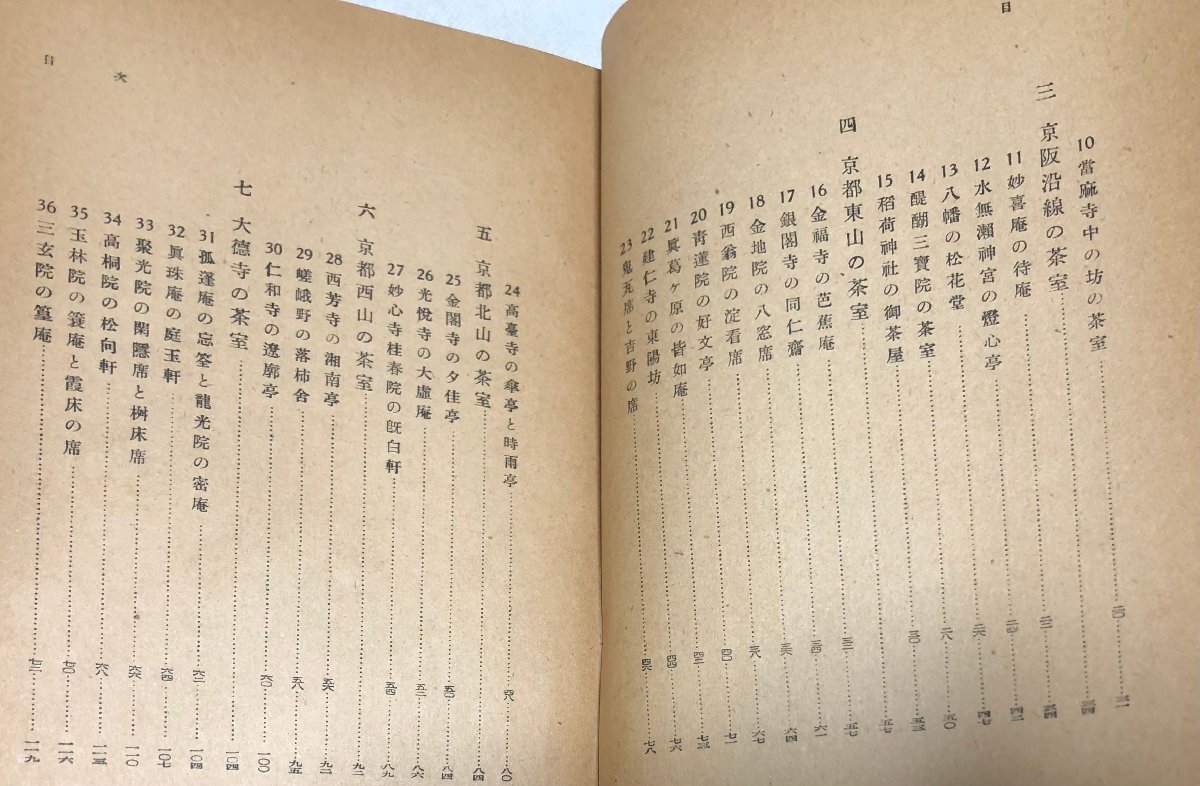 目
10 當麻寺中の坊の茶室……二〇……三一
三 京阪沿線の茶室……三四
11 妙喜庵の待庵……二二……三四
12 水無瀨神宮の燈心亭……二四……四三
13 八幡の松花堂……二六……四七
14 醍醐三寶院の茶室……二八……五〇
15 稻荷神社の御茶屋……三〇……五三
四 京都東山の茶室……五七
16 金福寺の芭蕉庵……三二……五七
17 銀閣寺の同仁齋……三四……六一
18 金地院の八窓席……三六……六四
19 西翁院の淀看席……三八……六七
20 靑蓮院の好文亭……四〇……七一
21 眞葛ヶ原の皆如庵……四二……七三
22 建仁寺の東陽坊……四四……七六
23 鬼瓦席と吉野の席……四六……七八
目次
24 高臺寺の傘亭と時雨亭……四八……八〇
五 京都北山の茶室……八四
25 金閣寺の夕佳亭……五〇……八四
26 光悅寺の大虛庵……五二……八六
27 妙心寺桂春院の旣白軒……五四……八九
六 京都西山の茶室……九二
28 西芳寺の湘南亭……五六……九二
29 嵯峨野の落柿舍……五八……九五
30 仁和寺の遼廓亭……六〇……一〇〇
七 大德寺の茶室……一〇四
31 孤蓬庵の忘筌と龍光院の密庵……六二……一〇四
32 眞珠庵の庭玉軒……六四……一〇七
33 聚光院の閑隱席と桝床席……六六……一一〇
34 高桐院の松向軒……六八……一一三
35 玉林院の簑庵と霞床の席……七〇……一一六
36 三玄院の篁庵……七二……一一九